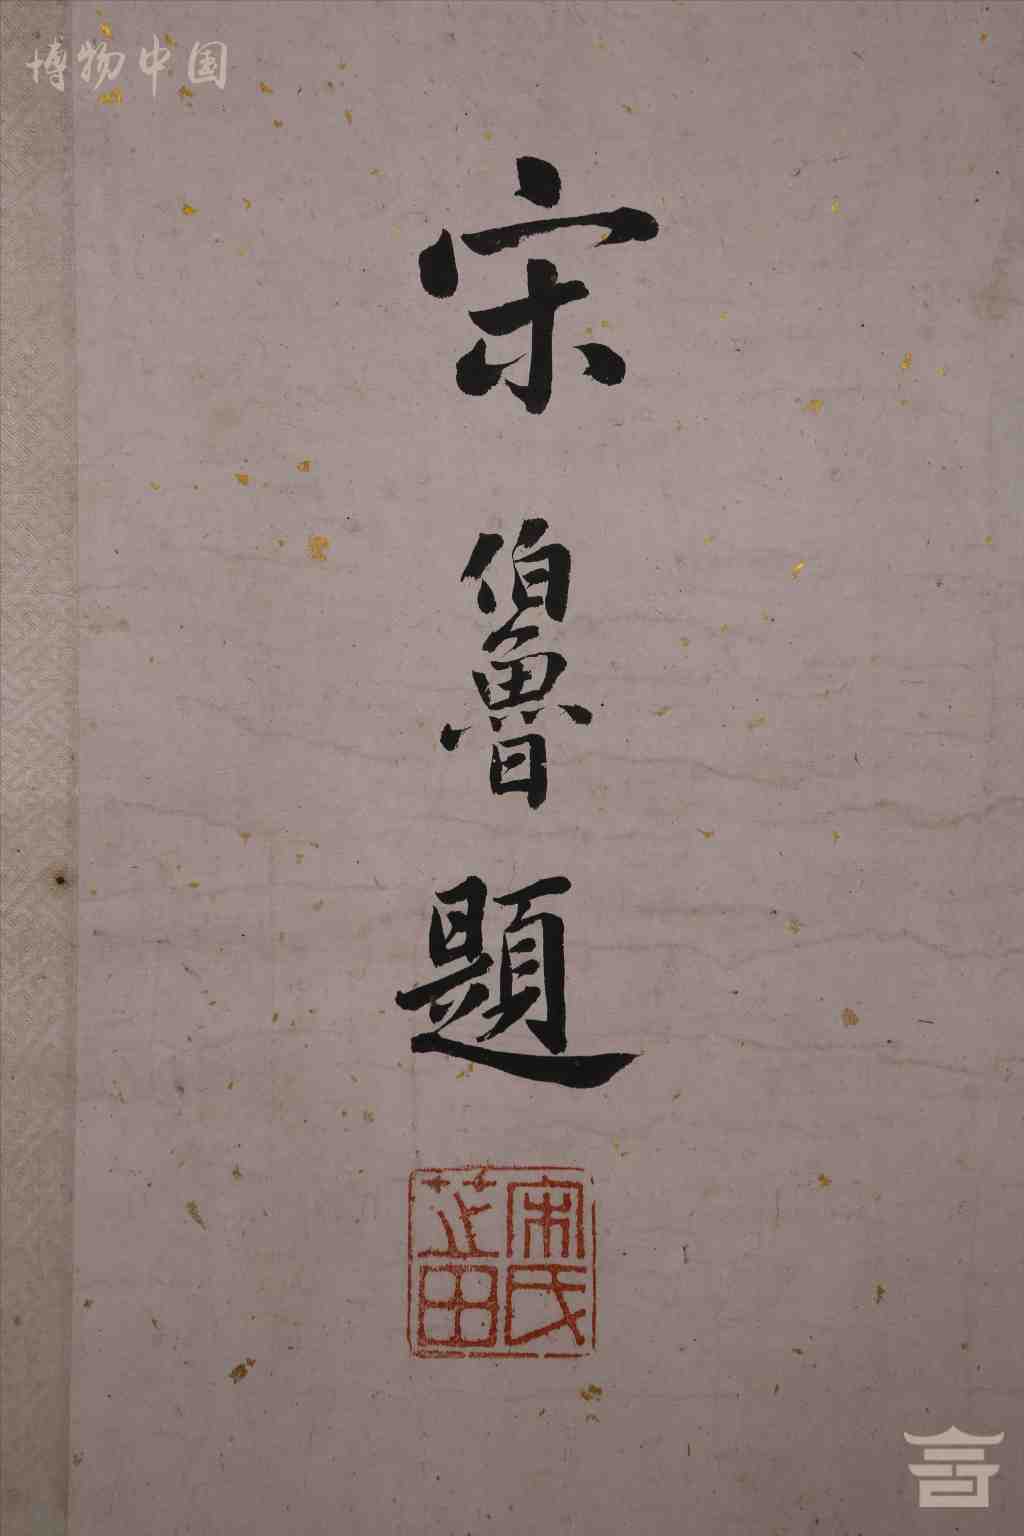 博物中国
宋伯魯題
宋氏
芷田